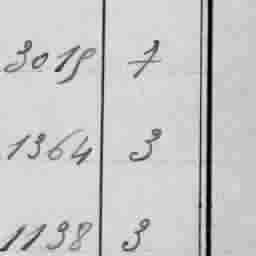 3019 7
1364 3
1138 3